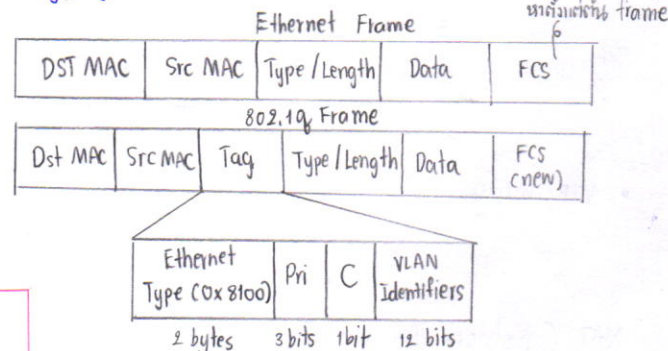 Ethernet Frame
frame
DST MAC Src MAC Type/Length Data FCS
802.1q Frame
Dst MAC Src MAC Tag Type/Length Data FCS
(new)
Ethernet
Type (0x8100) Pri C VLAN
Identifiers
2 bytes 3 bits 1 bit 12 bits